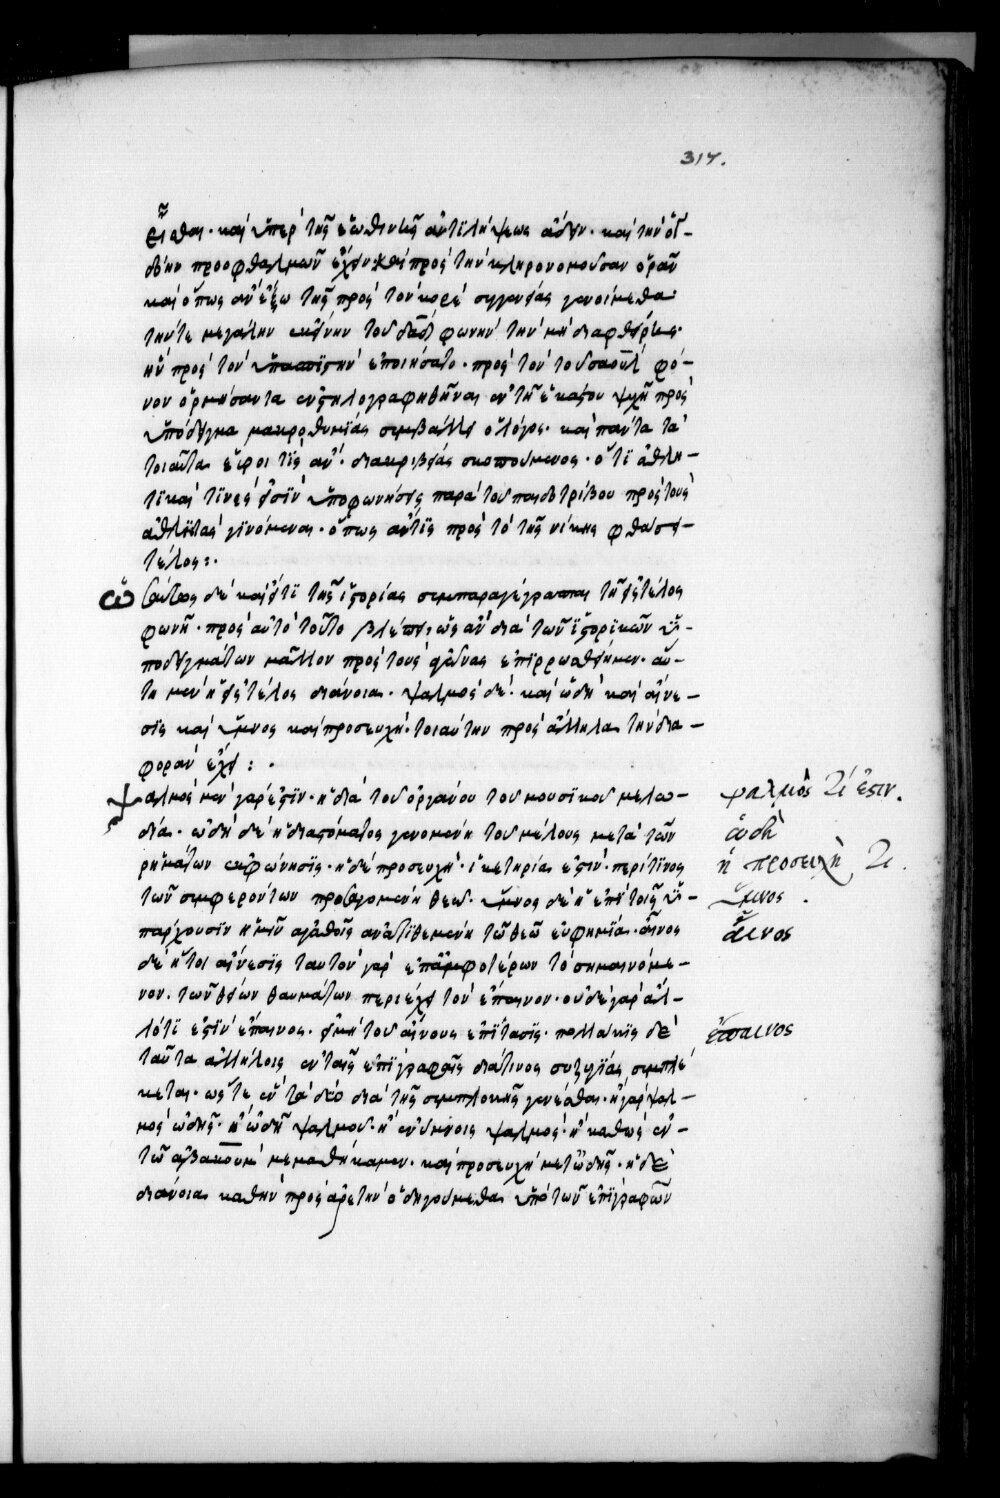 317.
εῖσθαι· καὶ ὑπὲρ τῆς ἑωθινῆς ἀντιλήψεως ἄδειν· καὶ τὴν ὀγ-
δόην προοφθαλμῶν ἔχειν· καὶ πρὸς τὴν κληρονομοῦσαν ὁρᾶν
καὶ ὅπως ἂν ἔξω τῆς πρὸς τὸν κορὲ συγγενείας γενοίμεθα·
τήν τε μεγάλην ἐκείνην τοῦ δαδ φωνὴν τὴν μὴ διαφθείρῃς·
ἣν πρὸς τὸν ὑπασπιστὴν ἐποιήσατο· πρὸς τὸν τοῦ σαοὺλ φό-
νον ὁρμήσαντα ἐνστηλογραφηθῆναι ἐν τῇ ἑκάστου ψχῇ πρὸς
ὑπόδειγμα μακροθυμίας συμβάλλει ὁ λόγος· καὶ πάντα τὰ
τοιαῦτα εὕροι τὶς ἂν· διακριβείας σκοπούμενος· ὅτι ἀθλη-
τικαί τινές εἰσιν ὑποφωνήσεις παρὰ τοῦ παιδοτρίβου πρὸς τοὺς
ἀθλητὰς γινόμεναι· ὅπως αὐτῖς πρὸς τὸ τῆς νίκης φθάσει
τέλος:·
ὡσαύτως δὲ καὶ εἴ τι τῆς ἱστορίας συμπαραγέγραπται τῇ εἰς τέλος
φωνῇ· πρὸς αὐτὸ τοῦτο βλέπει, ὡς ἂν διὰ τῶν ἱστορικῶν ὑ-
ποδειγμάτων μᾶλλον πρὸς τοὺς ἀγῶνας ἐπιρρωσθείημεν· αὕ-
τη μὲν ἡ εἰς τέλος διάνοια· ψαλμὸς δὲ· καὶ ᾠδὴ καὶ αἴνε-
σις καὶ ὕμνος καὶ προσευχὴ· τοιαύτην πρὸς ἄλληλα τὴν δια-
φορὰν ἔχει:·
ψαλμὸς μὲν γάρ ἐστιν· ἡ διὰ τοῦ ὀργάνου τοῦ μουσικοῦ μελω-
δία· ᾠδὴ δὲ ἡ διαστόματος γενομένη τοῦ μέλους μετὰ τῶν
ῥημάτων ἐκφώνησις· ἡ δὲ προσευχὴ· ἱκετηρία ἐστὶν· περί τινος
τῶν συμφερόντων προσαγομένη θεῷ· ὕμνος δὲ ἡ ἐπὶ τοῖς ὑ-
πάρχουσιν ἡμῖν ἀγαθοῖς ἀνατιθεμένη τῷ θεῷ εὐφημία· αἶνος
δὲ ἤτοι αἴνεσις ταυτὸν γὰρ ἐπ' ἀμφοτέρων τὸ σημαινόμε-
νον· τῶν θείων θαυμάτων περιέχει τὸν ἔπαινον· οὐδὲ γὰρ ἄλ-
λό τι ἐστὶν ἔπαινος· εἰ μὴ τοῦ αἴνους ἐπίτασις· πολλάκις δὲ
ταῦτα ἀλλήλοις ἐν ταῖς ἐπιγραφαῖς διά τινος συζυγίας συμπλέ
κεται· ὥστε ἓν τὰ δύο διὰ τῆς συμπλοκῆς γενέσθαι· ἢ γὰρ ψαλ-
μὸς ᾠδῆς· ἢ ᾠδὴ ψαλμοῦ· ἢ ἐν ὕμνοις ψαλμὸς· ἢ καθὼς ἐν-
τῷ ἀβακοὺμ μεμαθήκαμεν· καὶ προσευχὴ μετ' ᾠδῆς· ἡ δὲ
διάνοια καθ' ἣν πρὸς ἀρετὴν ὁδηγούμεθα ὑπὸ τῶν ἐπιγραφῶν
ψαλμὸς τί ἐστιν.
ᾠδὴ
ἡ προσευχὴ τί.
ὕμνος.
αἶνος
ἔπαινος